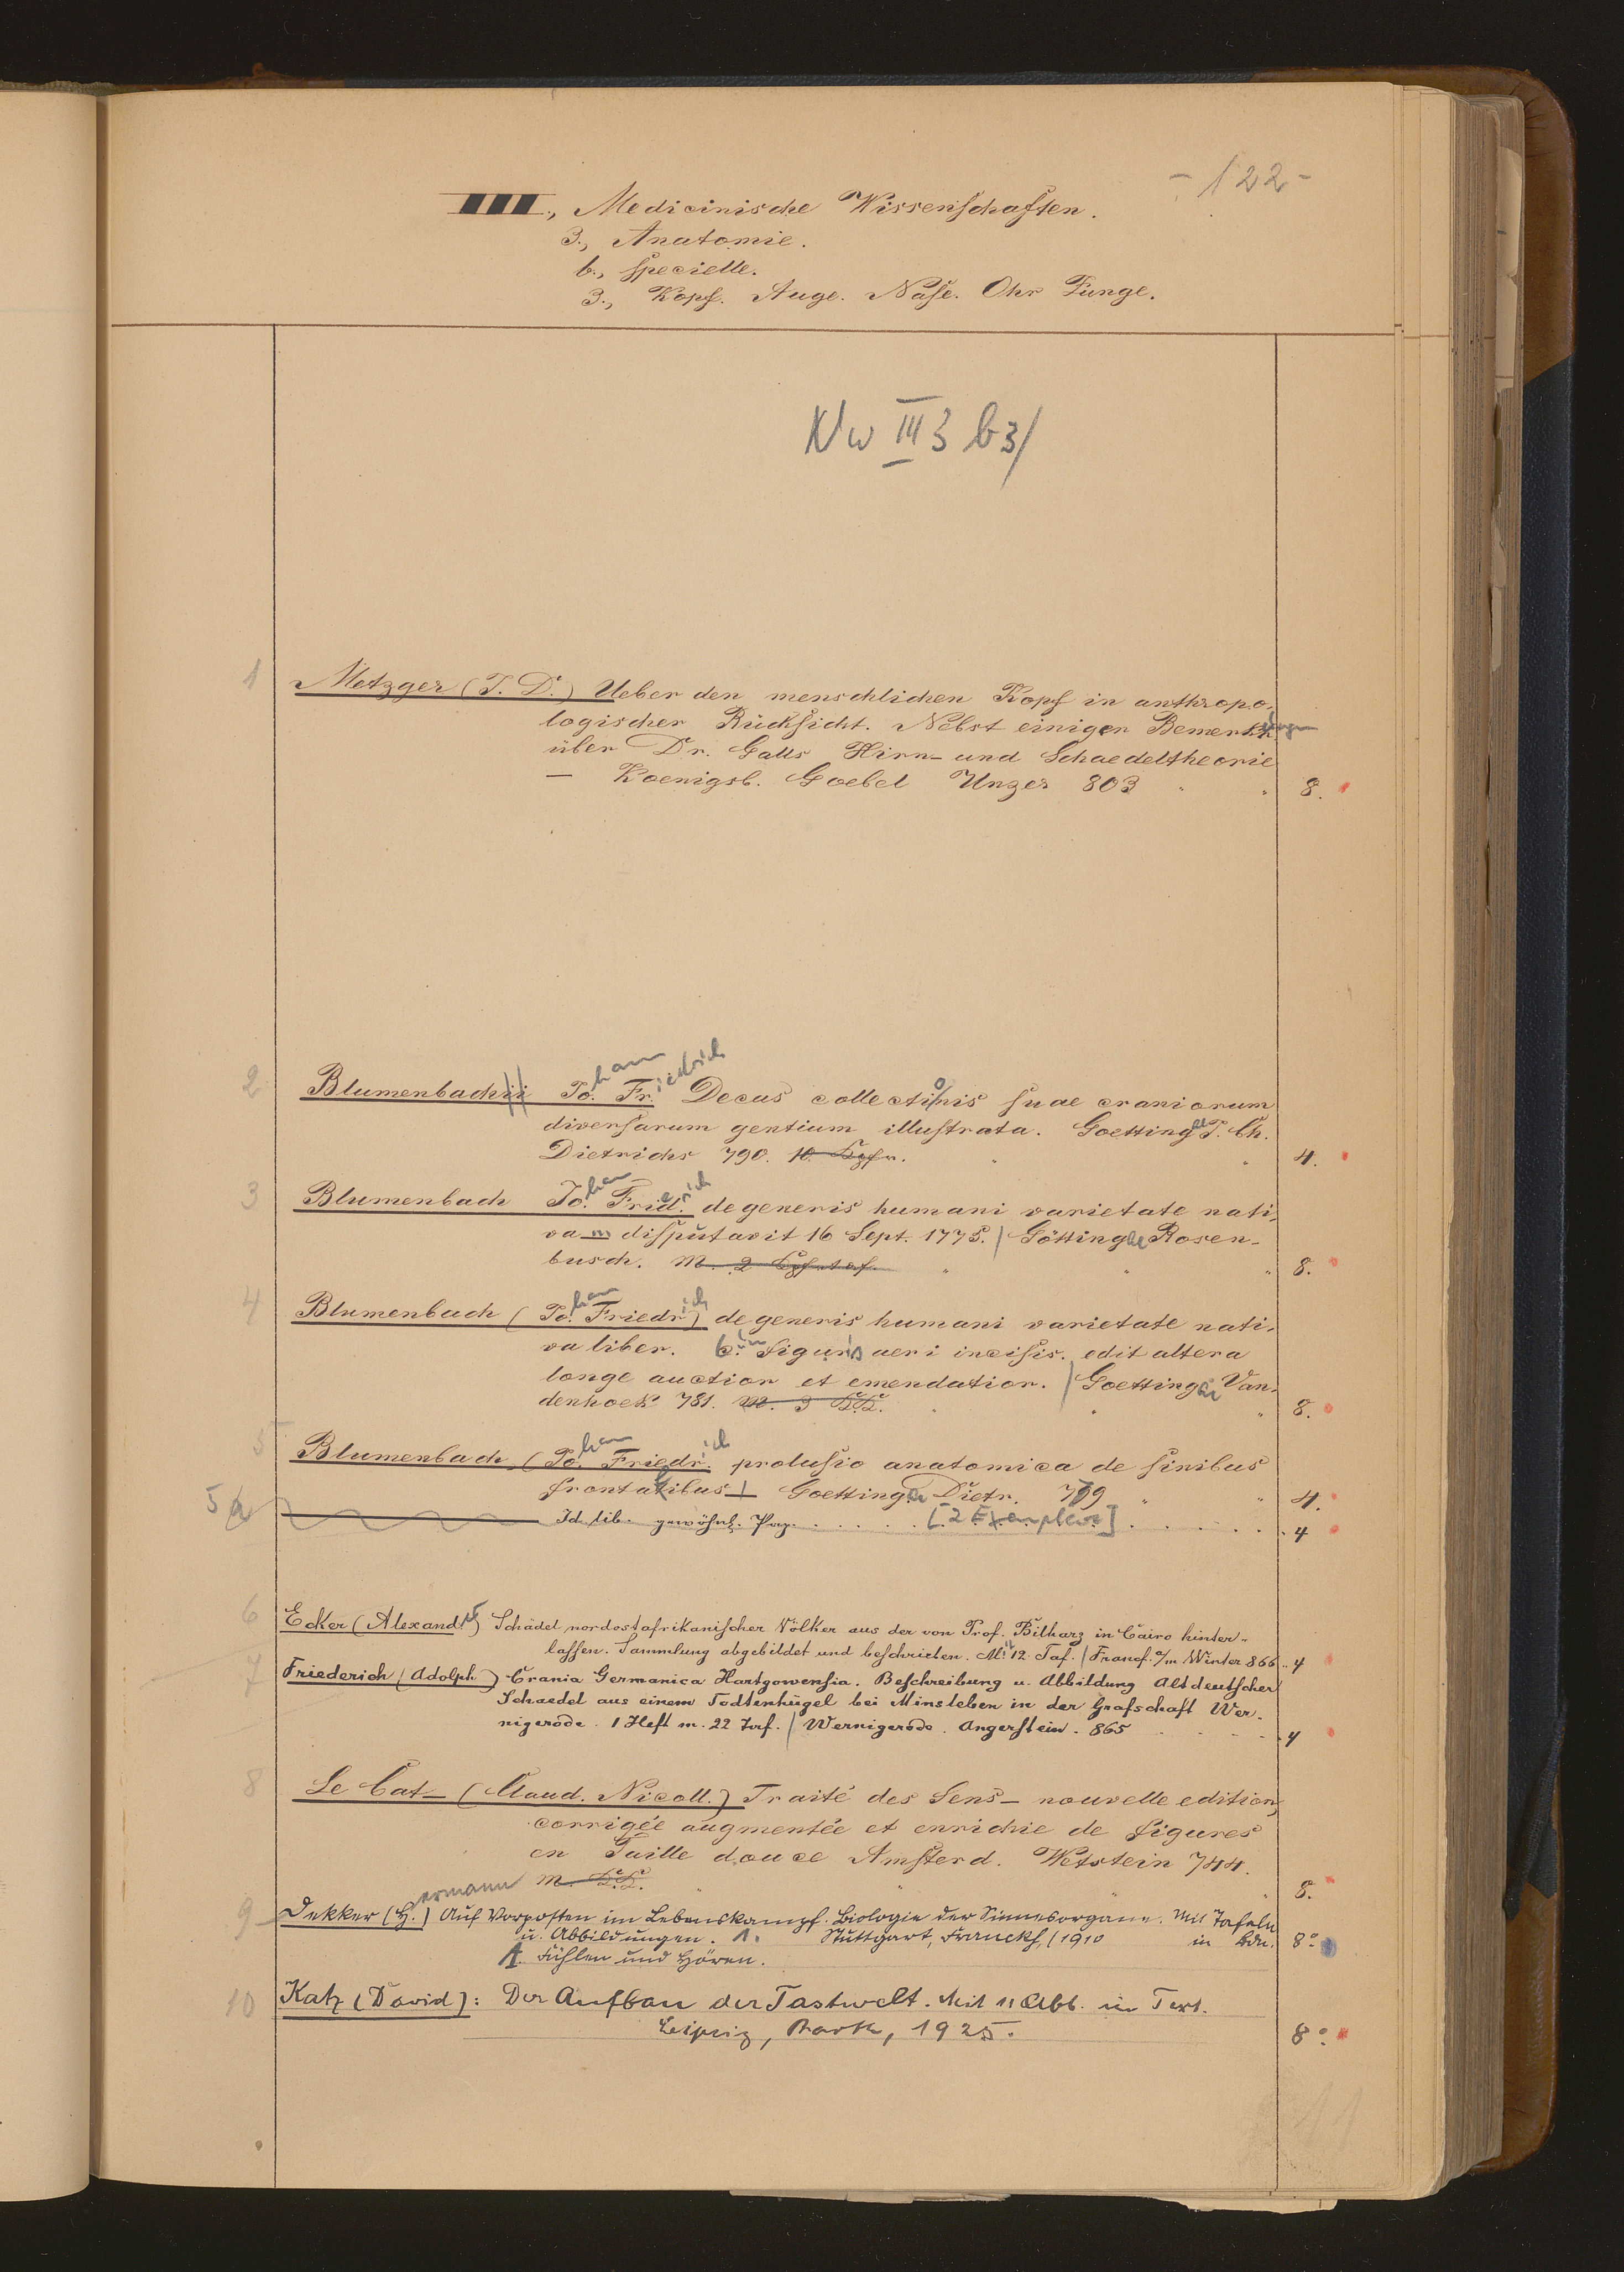 - 122 -
III., Medicinische Wissenschaften.
3., Anatomie.
b., specielle.
3., Kopf. Auge. Nase. Ohr Zunge.
Nw III 3 b3/
1 Metzger (J. D.) Ueber den menschlichen Kopf in anthropo-
logischer Rücksicht. Nebst einigen Bemerkungen
über Dr. Galls Hirn- und Schaedeltheorie
— Koenigsb. Goebel Unzer 803 " " 8.
2 Blumenbachii Johann Friedrich Decas collectionis suae craniorum
diversarum gentium illustrata. Goettingae J. Ch.
Dietrichs 790. 10 Kpfr. " " 4.
3 Blumenbach Johann Friederich de generis humani varietate nati-
va m disputavit 16 Sept. 1775. / Göttingae Rosen-
busch. m. 2 Kpfrtaf. " " " 8.
4 Blumenbach (Johann Friedrich) de generis humani varietate nati-
va liber. cum figuris aeri incisis. edit altera
longe auctior et emendatior. / Goettingae Van-
denhoek 781. m. 3 KK. " " " 8.
5 Blumenbach (Johann Friedrich prolusio anatomica de sinibus
frontalibus / Goettingae Dietr. 779 " " 4.
5a Id. lib. gewöhnl. Pap. . . . . . [2 Exemplare] . . . . . . 4
6 Ecker (Alexander) Schädel nordostafrikanischer Völker aus der von Prof. Bilharz in Cairo hinter-
lassen. Sammlung abgebildet und beschrieben. Mit 12 Taf. / Francf. a/m Winter 866 .. 4
7 Friederich (Adolph) Crania Germanica Hartgowensia. Beschreibung u. Abbildung Altdeutscher
Schaedel aus einem Todtenhügel bei Minsleben in der Grafschaft Wer-
nigerode. 1 Heft m. 22 Taf. / Wernigerode. Angerstein. 865 . . . . 4
8 Le Cat - (Claud. Nicoll.) Traité des Sens - nouvelle edition,
corrigée augmentée et enrichie de figures
en Taille douce Amsterd. Wetstein 744.
m. KK. " " " " 8.
9 Dekker (Hermann) Auf Vorposten im Lebenskampf. Biologie der Sinnesorgane. Mit Tafeln
u. Abbildungen. 1. Stuttgart, Franckh, (1910 in Bdn. 8°.
1. Fühlen und Hören.
10 Katz (David): Der Aufbau der Tastwelt. Mit 11 Abb. im Text.
Leipzig, Barth, 1925. 8°.
11